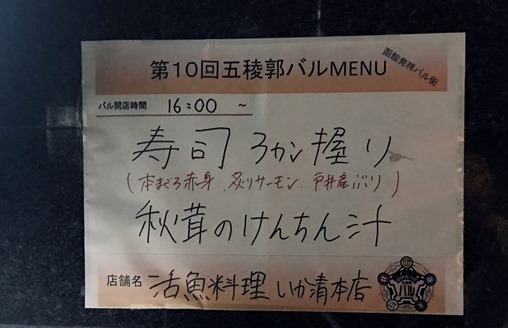 函館発祥バル街
第10回五稜郭バルMENU
バル開店時間 16:00 ~
寿司 3カン握り
(本まぐろ赤身、炙りサーモン、戸井産ぶり)
秋茸のけんちん汁
店舗名 活魚料理 いか清本店
バル